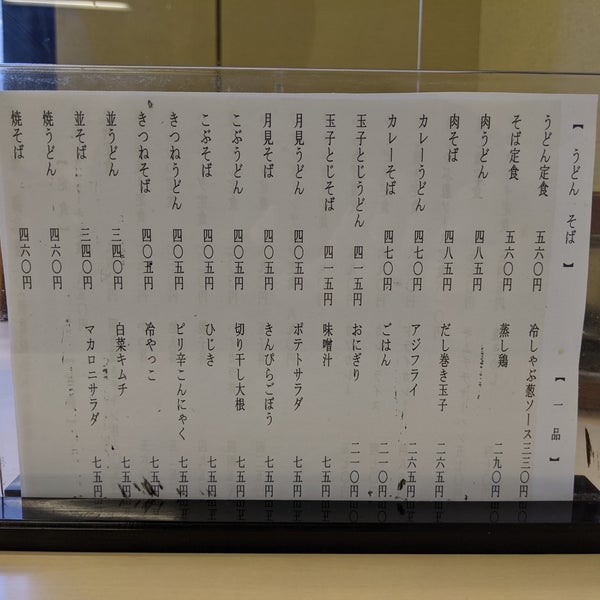 【うどん そば】
うどん定食 五六〇円
そば定食 五六〇円
肉うどん 四八五円
肉そば 四八五円
カレーうどん 四七〇円
カレーそば 四七〇円
玉子とじうどん 四一五円
玉子とじそば 四一五円
月見うどん 四〇五円
月見そば 四〇五円
こぶうどん 四〇五円
こぶそば 四〇五円
きつねうどん 四〇五円
きつねそば 四〇五円
並うどん 三四〇円
並そば 三四〇円
焼うどん 四六〇円
焼そば 四六〇円
【一品】
冷しゃぶ葱ソース 三三〇円
蒸し鶏 二九〇円
だし巻き玉子 二六五円
アジフライ 二六五円
ごはん 二一〇円
おにぎり 二一〇円
味噌汁 七五円
ポテトサラダ 七五円
きんぴらごぼう 七五円
切り干し大根 七五円
ひじき 七五円
ピリ辛こんにゃく 七五円
冷やっこ 七五円
白菜キムチ 七五円
マカロニサラダ 七五円